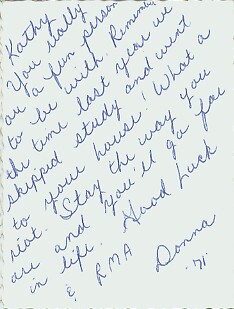 Kathy
You really
are a fun person
to be with. Remember
the time last year we
skipped study and went
to your house! What a
riot. Stay the way you
are and you'll go far
in life. Good Luck
& R.M.A
Donna
'71